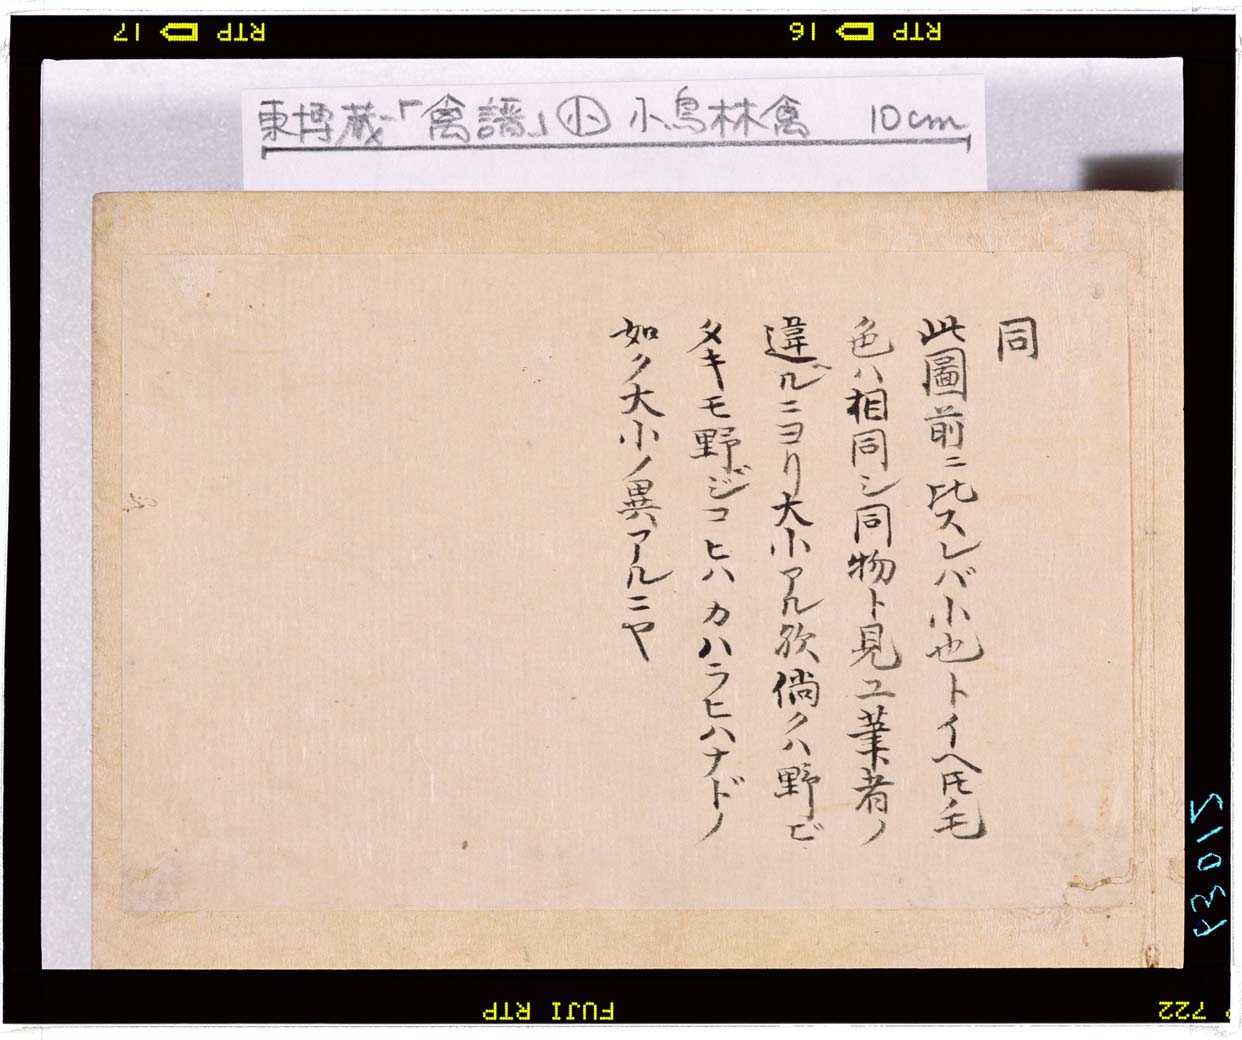 RTP 17
RTP 16
東博蔵「禽譜」㊁小鳥林禽 10cm
同
此圖前ニ比スレバ小也トイヘ𪜈毛
色ハ相同シ同物ト見ユ筆者ノ
違ルニヨリ大小アル欤倘クハ野ビ
タキモ野ジコヒハカハラヒハナドノ
如ク大小ノ異アルニヤ
FUJI RTP
722